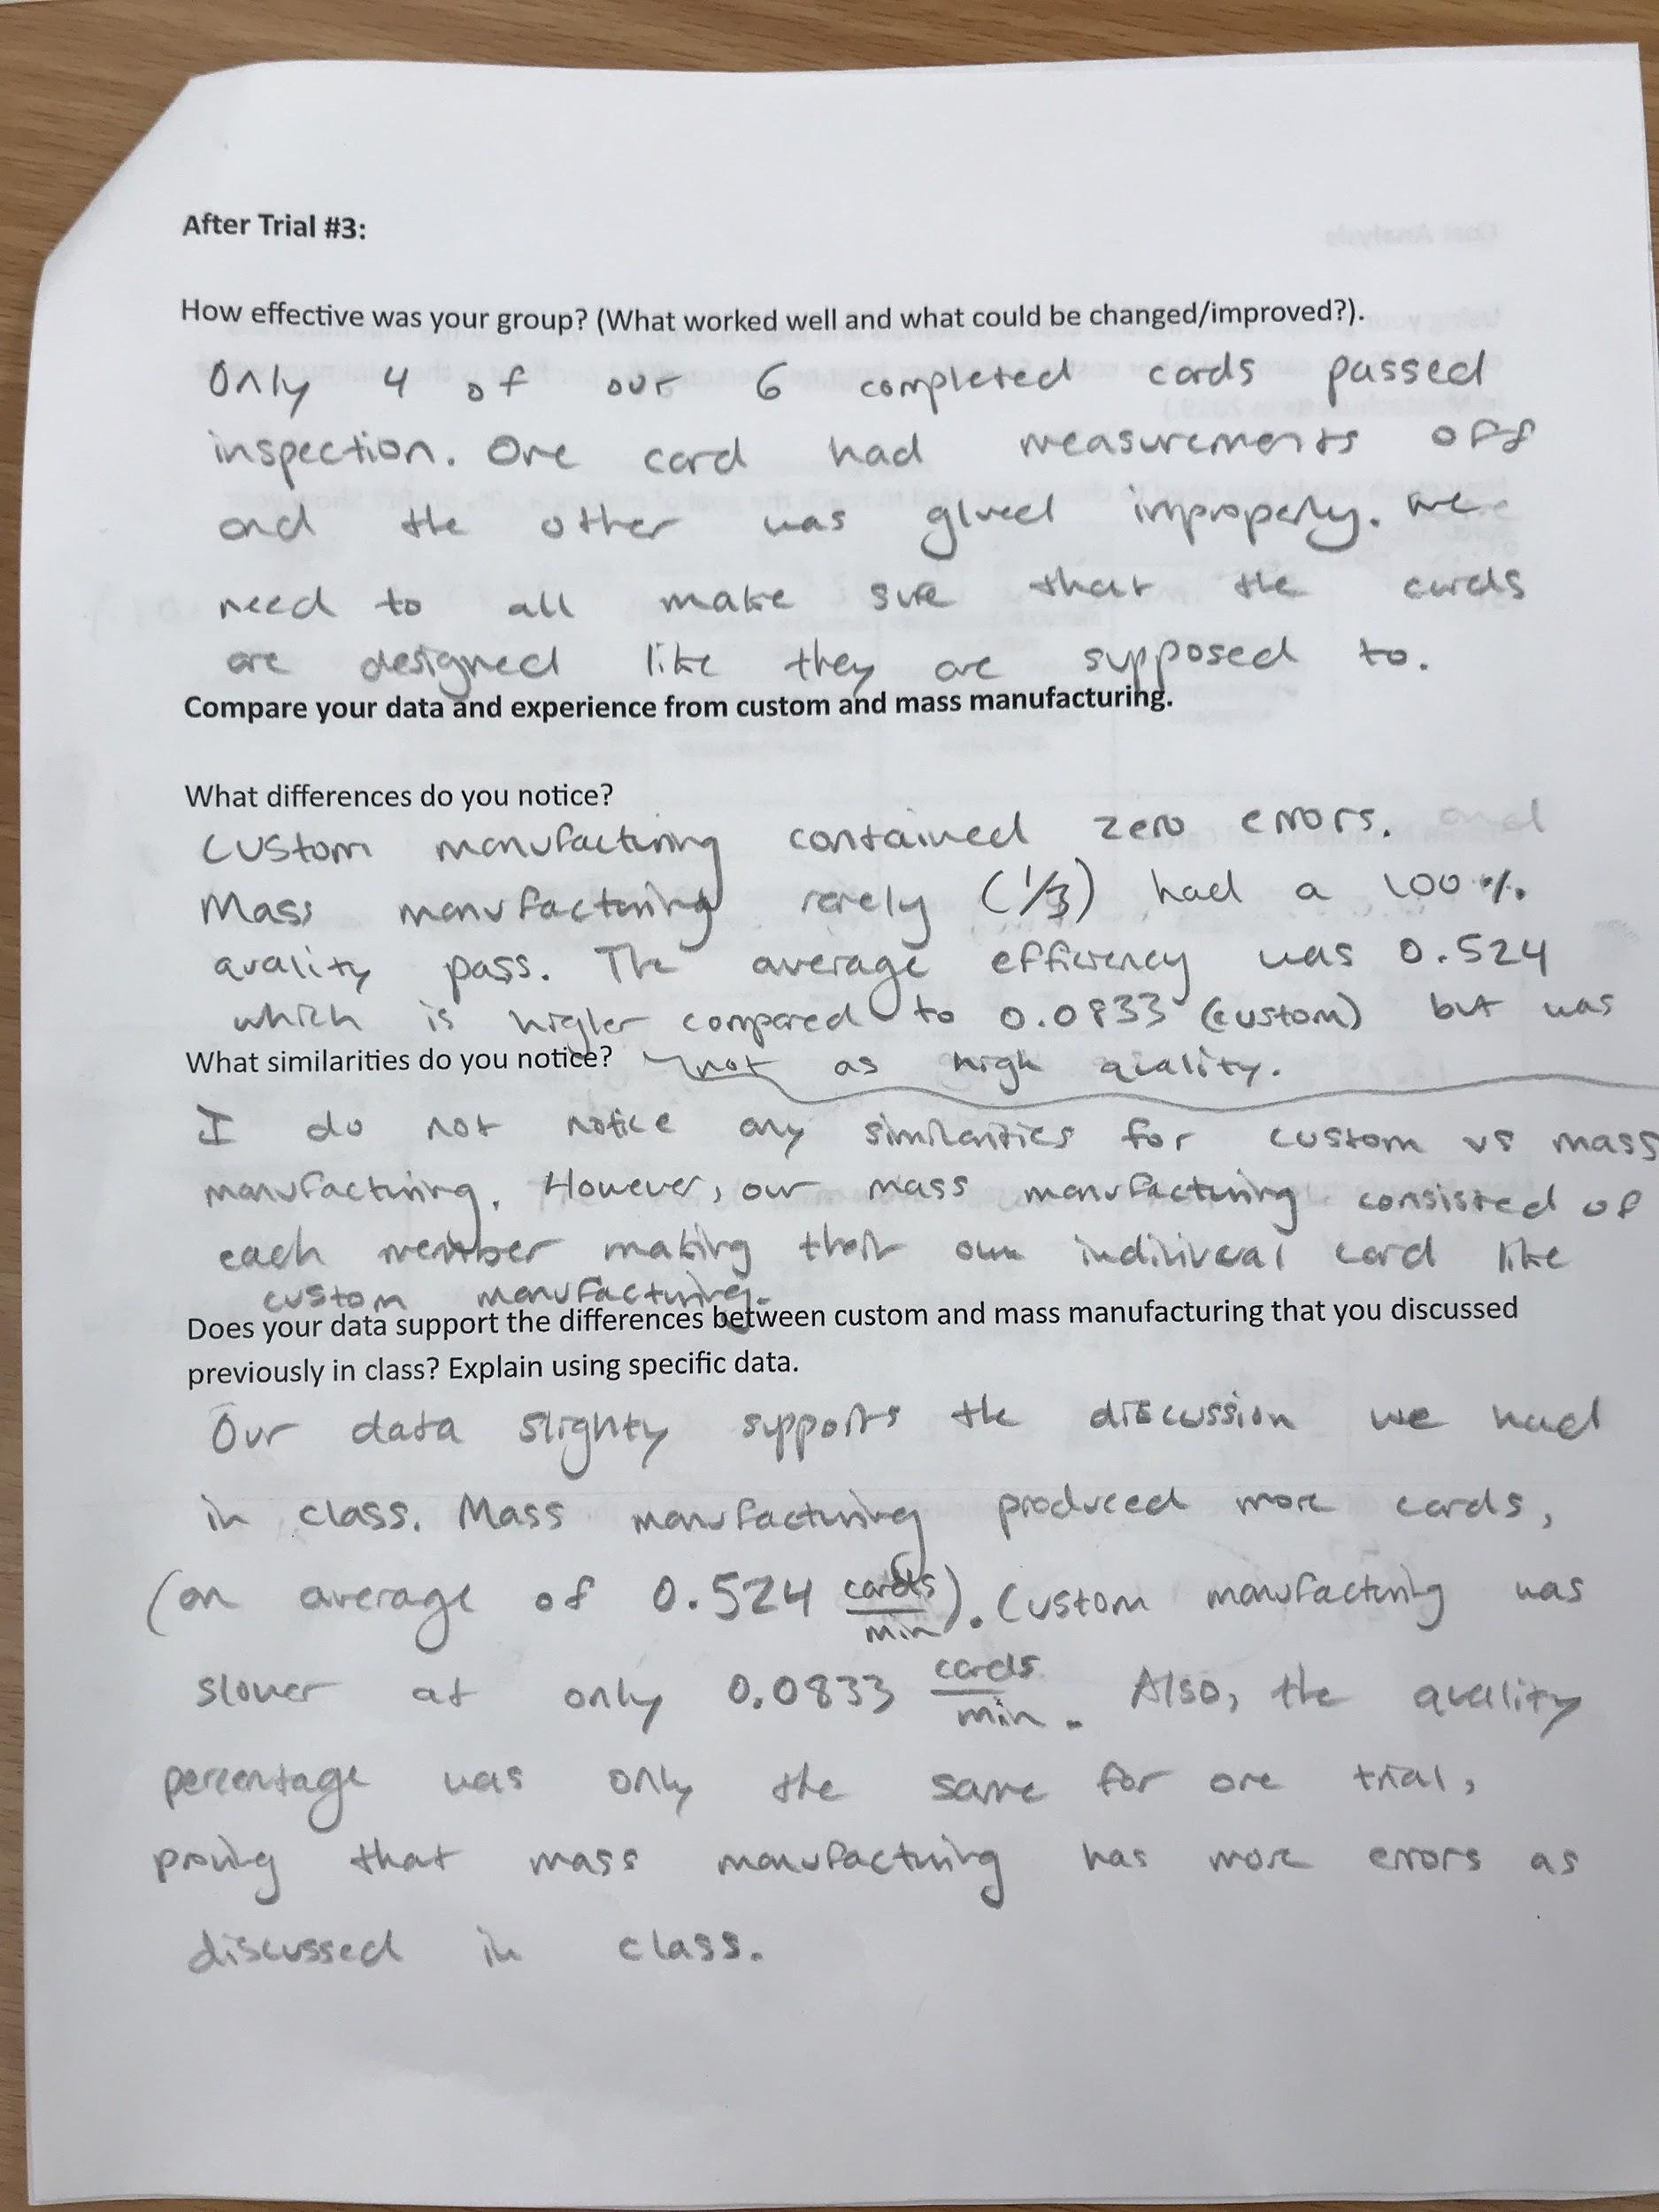 After Trial #3:
How effective was your group? (What worked well and what could be changed/improved?).
Only 4 of our 6 completed cards passed
inspection. One card had measurements off
and the other was glued improperly. We
need to all make sure that the cards
are designed like they are supposed to.
Compare your data and experience from custom and mass manufacturing.
What differences do you notice?
Custom manufacturing contained zero errors. and
Mass manufacturing rarely (1/3) had a 100%
quality pass. The average efficiency was 0.524
which is higher compared to 0.0833 (custom) but was
not as high quality.
What similarities do you notice?
I do not notice any similarities for custom vs mass
manufacturing. However, our mass manufacturing consisted of
each member making their own indiliveal card like
custom manufacturing.
Does your data support the differences between custom and mass manufacturing that you discussed
previously in class? Explain using specific data.
Our data slighty supports the discussion we had
in class. Mass manufacturing produced more cards,
(an average of 0.524 cards/min). Custom manufacturing was
slower at only 0.0833 cards/min. Also, the quality
percentage was only the same for one trial,
proving that mass manufacturing has more errors as
discussed in class.